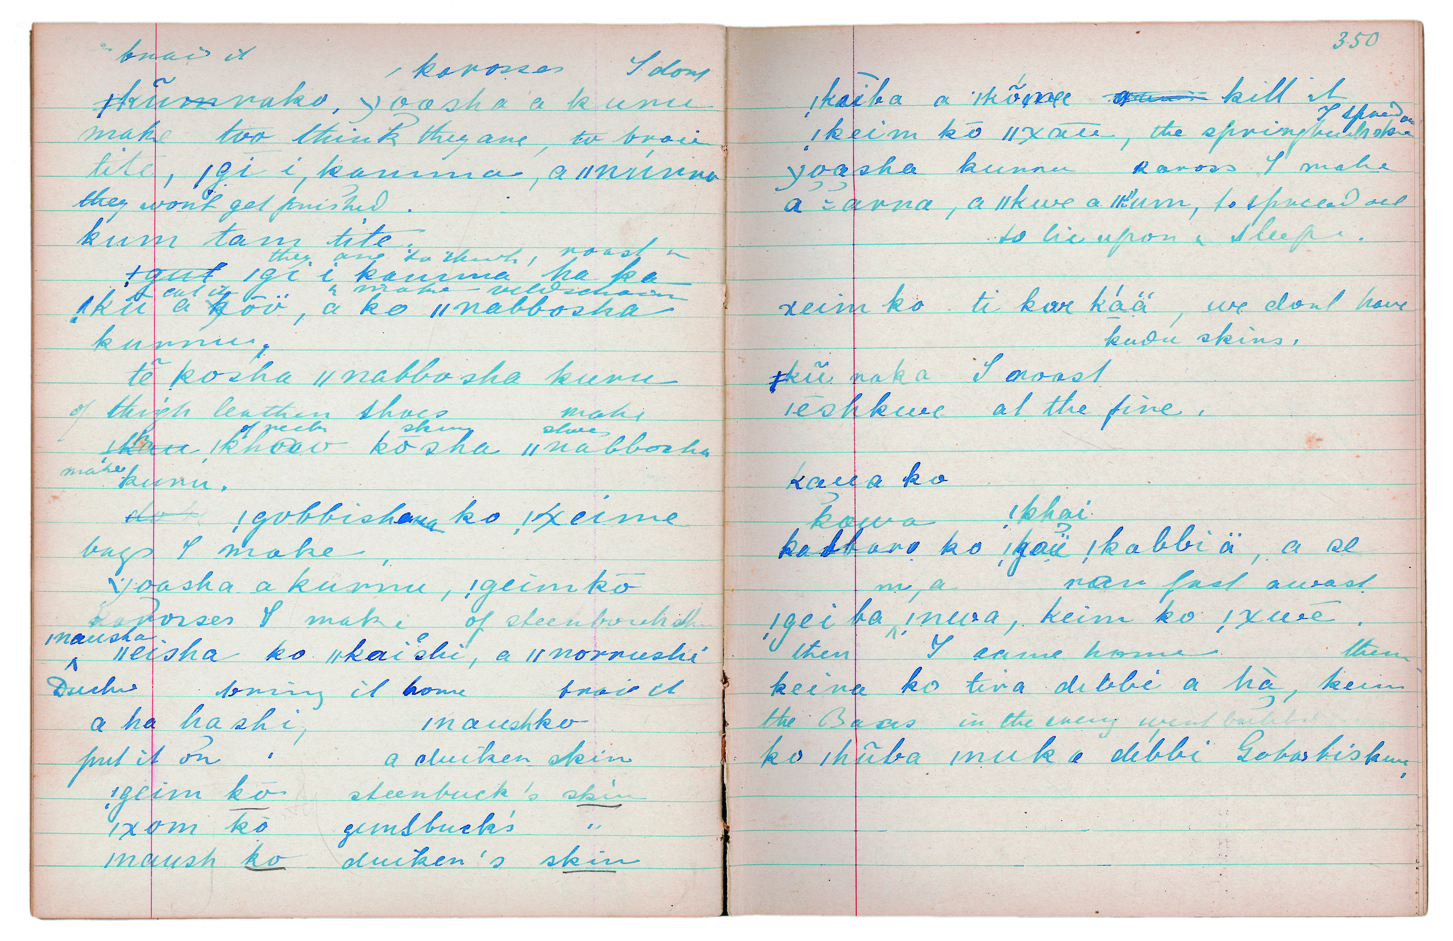 brai it
karosses I dont
ǂkũm rako, yoasha a kuru
make too think they are, to braie
tite, ǀgi i, kamma, a ǁnurru
they wont get finished.
kum tam tite.
they are to think, roast
ǀgi i kamma ha ka
cut it & make veldschoen
ǃkũ a kõö, a ko ǁnabbosha
kurru,
tẽ kosha ǁnabbosha kuru
of thigh leather shoes make
of neck skin shoes
ǀkhoao kõsha ǁnabbosha
make
kuru.
ǃgobbishana ko ǃxeime
bags I make
yoasha a kurru, ǃgeimkõ
karosses I make of steenbouk
ǀnausha
ǁeisha ko ǁkaishi, a ǁnorrushi
Duiker bring it home braie it
a ha hashi, ǀnaushko
put it on a duiken skin
ǃgeim kõ steenbuck's skin
ǀxom kõ gemsbuck's "
ǀnaush ko duiken's skin
350
ǃkaiba a kill it
I spread out
ǃkeim kõ ǁxaie, the springbuck
yoasha kurru kaross I make
a zarna, a ǁkwe a ǁkum, to spread out
to lie upon & sleep.
xeim ko ti kar káä, we dont have
kudu skins.
ǂkũ raka I roast
ǀeshkwe at the fire.
kaua ko
kawa ǃkhai
kabbaro ko ǃgaü ǃkabbi ä, a se
m, a ran fast away
ǃgeiba ǀnwa, keim ko ǃxwẽ.
then I came home then
keira ko tira debbi a hà, keim
the Baas in the went
ko ǀhũba ǀnuka debbi Gobabiskwe,